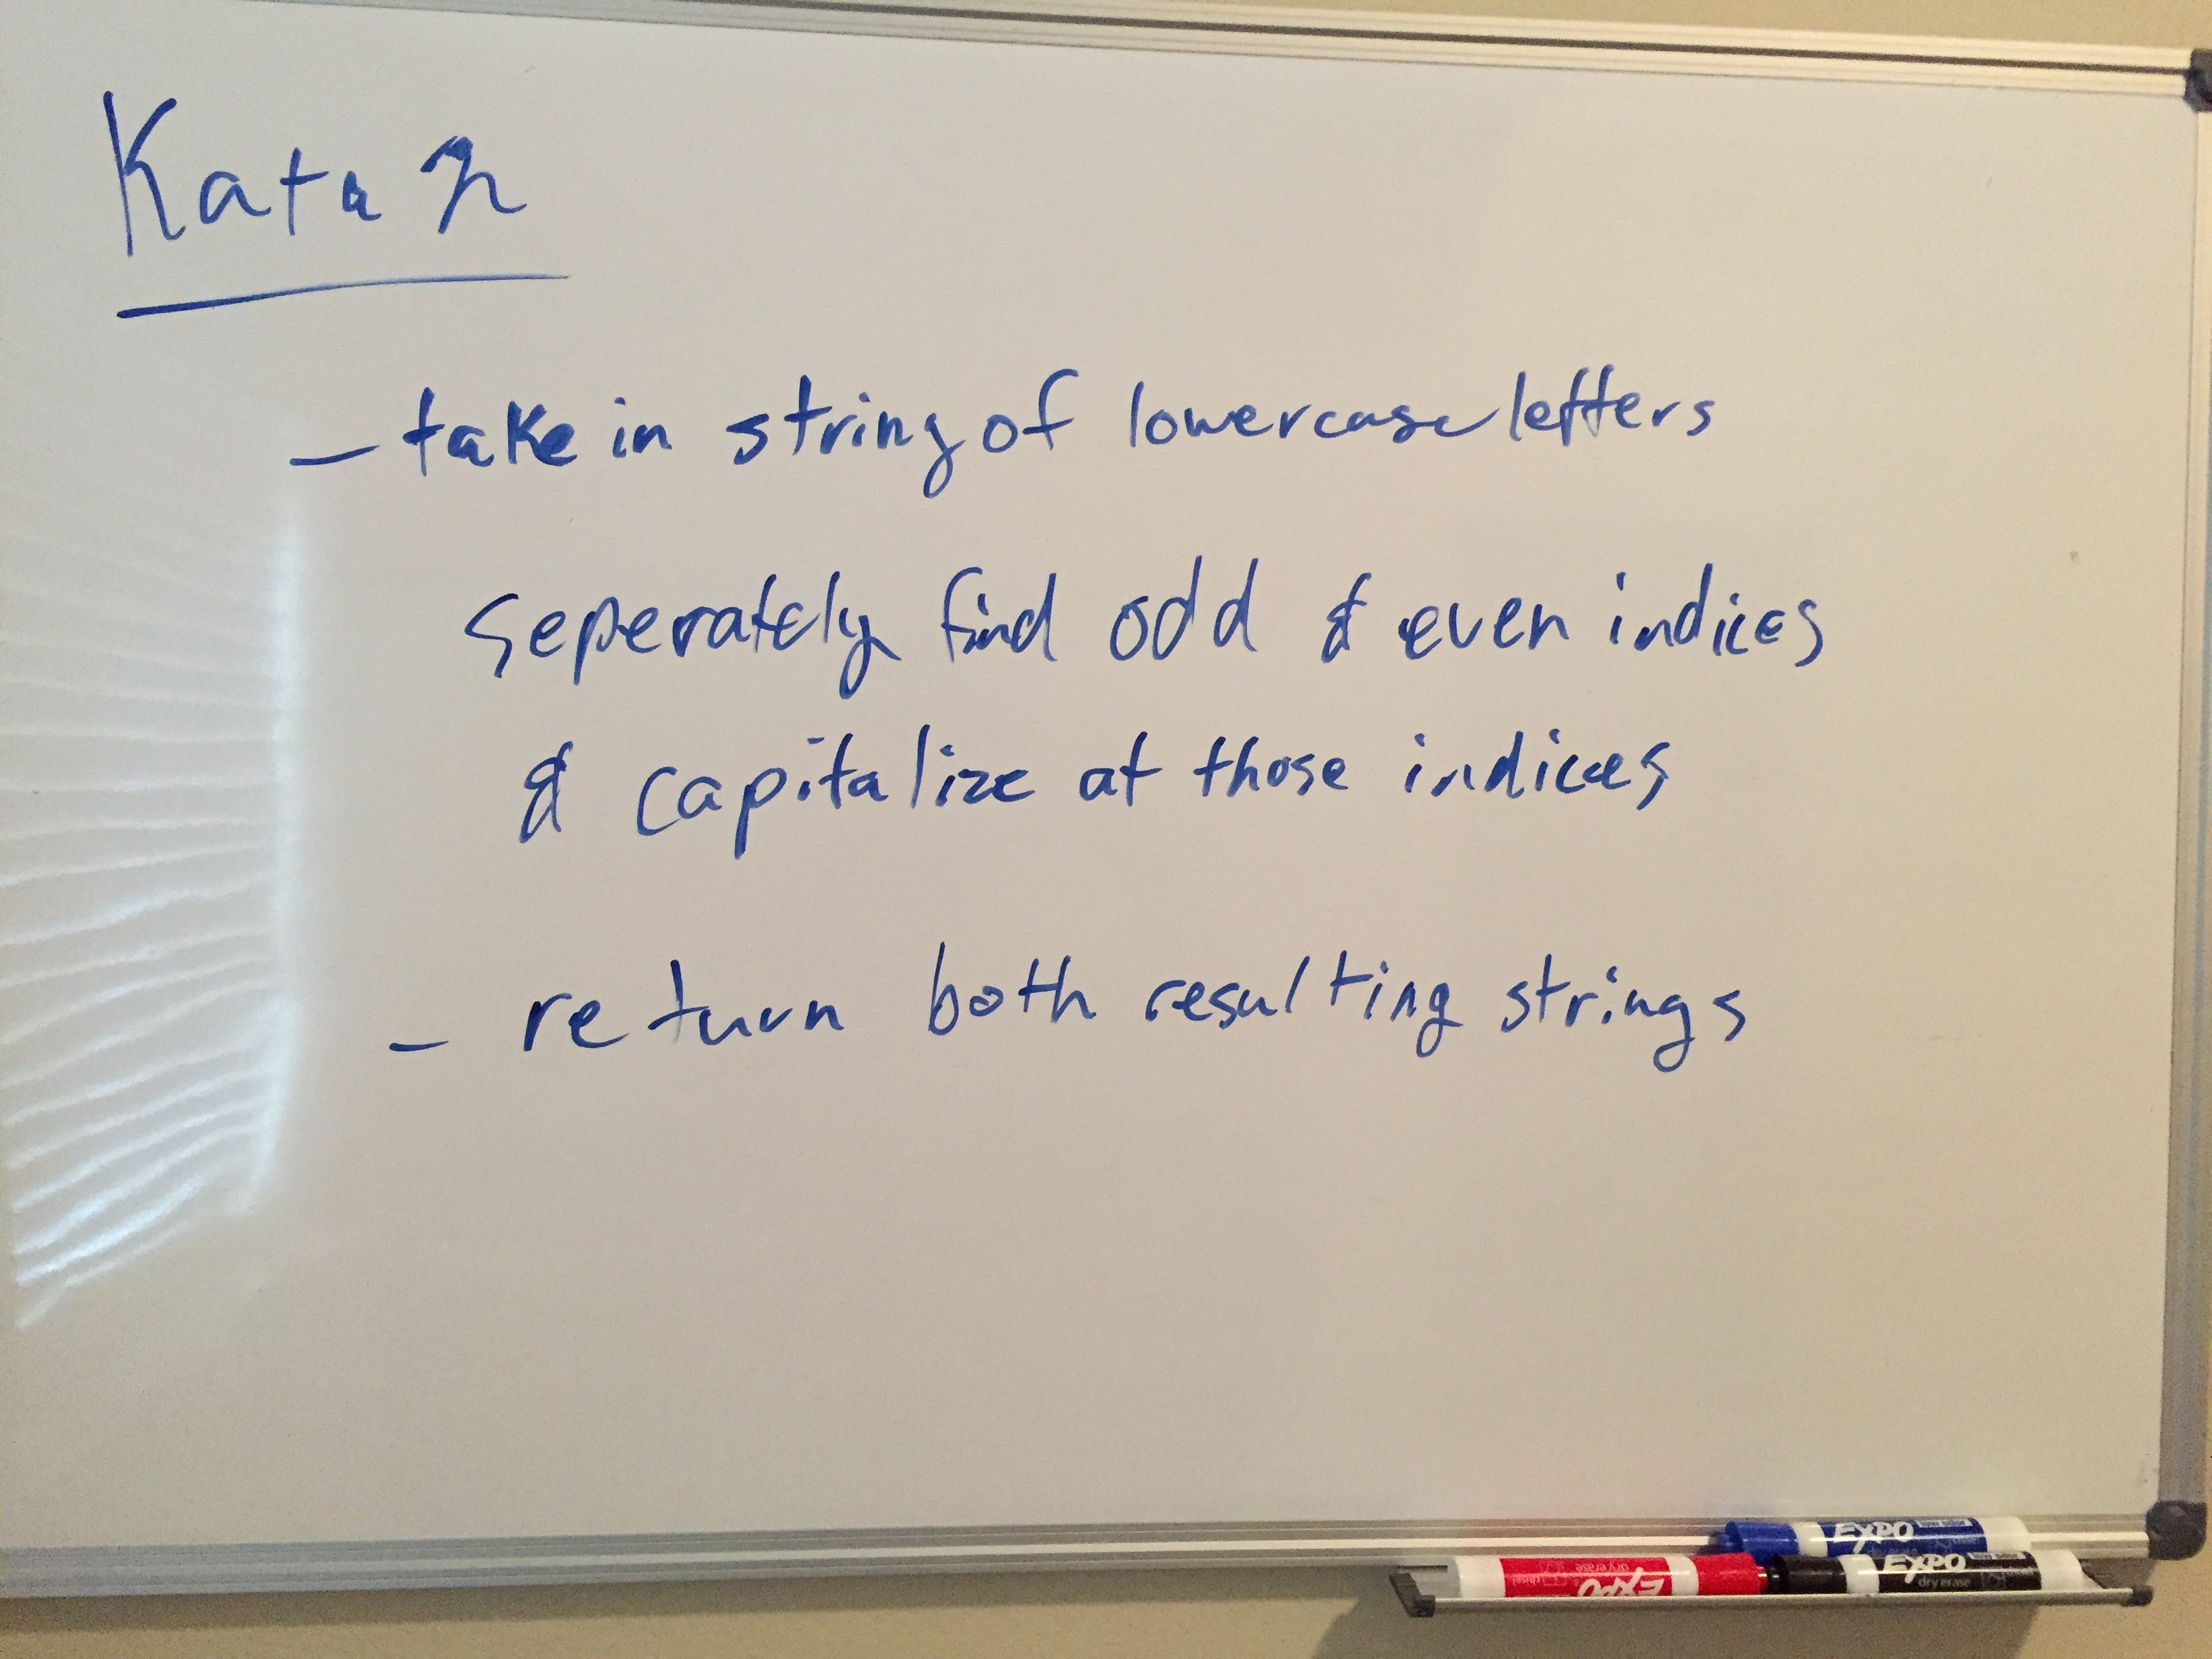 Kata n
- take in string of lowercase letters
seperately find odd & even indices
& capitalize at those indices
- return both resulting strings
EXPO
EXPO
dry erase
EXPO
dry erase